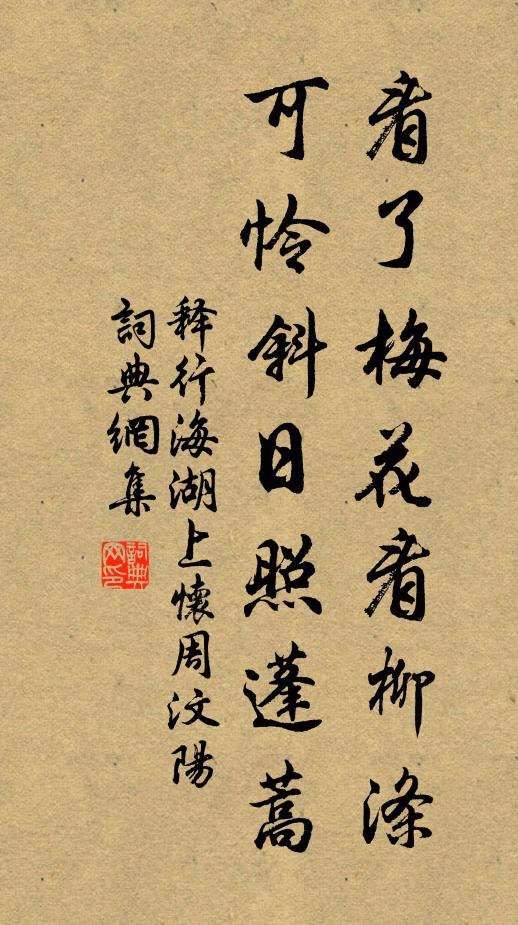 看了梅花看柳條
可怜斜日照蓬蒿
释行海湖上懷周汶陽
詞典網集
詞典网印